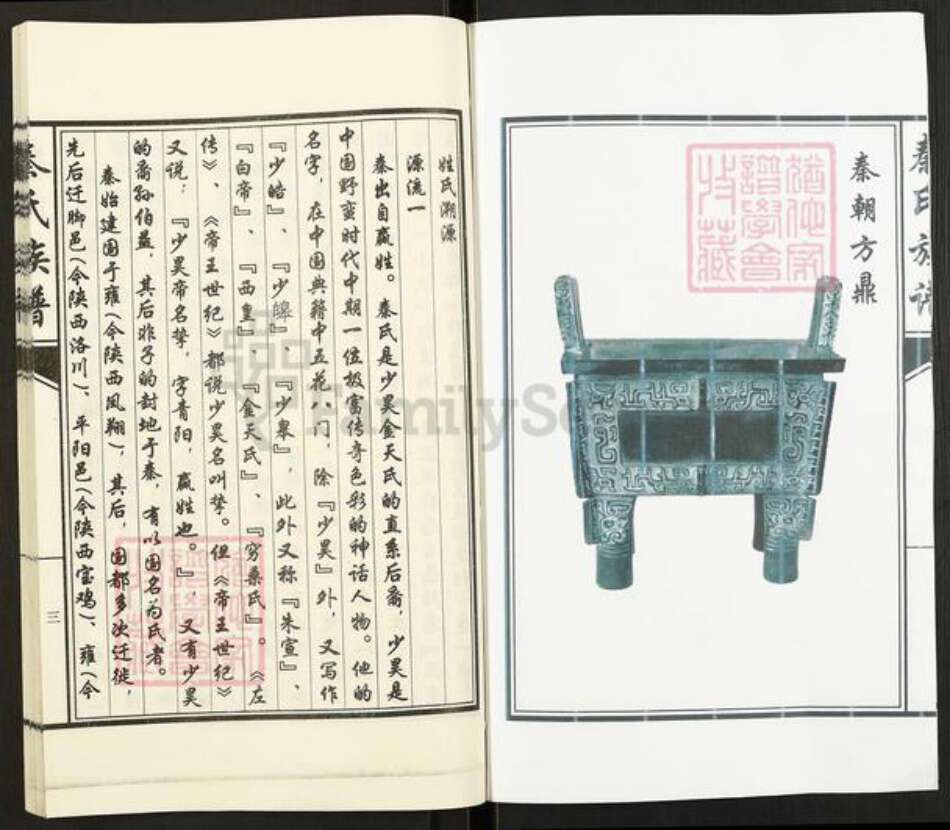 秦朝方鼎
秦氏族谱
姓氏溯源
源流一
秦出自嬴姓。秦氏是少昊金天氏的直系后裔，少昊是
中国野蛮时代中期一位极富传奇色彩的神话人物。他的
名字，在中国典籍中五花八门，除『少昊』外，又写作
『少皓』、『少皞』、『少皋』，此外又称『朱宣』、
『白帝』、『西皇』、『金天氏』、『穷桑氏』。《左
传》、《帝王世纪》都说少昊名叫挚。但《帝王世纪》
又说：『少昊帝名挚，字青阳，嬴姓也。』，又有少昊
的裔孙伯益，其后非子的封地于秦，有以国名为氏者。
秦始建国于雍（今陕西凤翔），其后，国都多次迁徙，
先后迁脚邑（今陕西洛川）、平阳邑（今陕西宝鸡）、雍（今
秦氏族谱
三
FamilySe